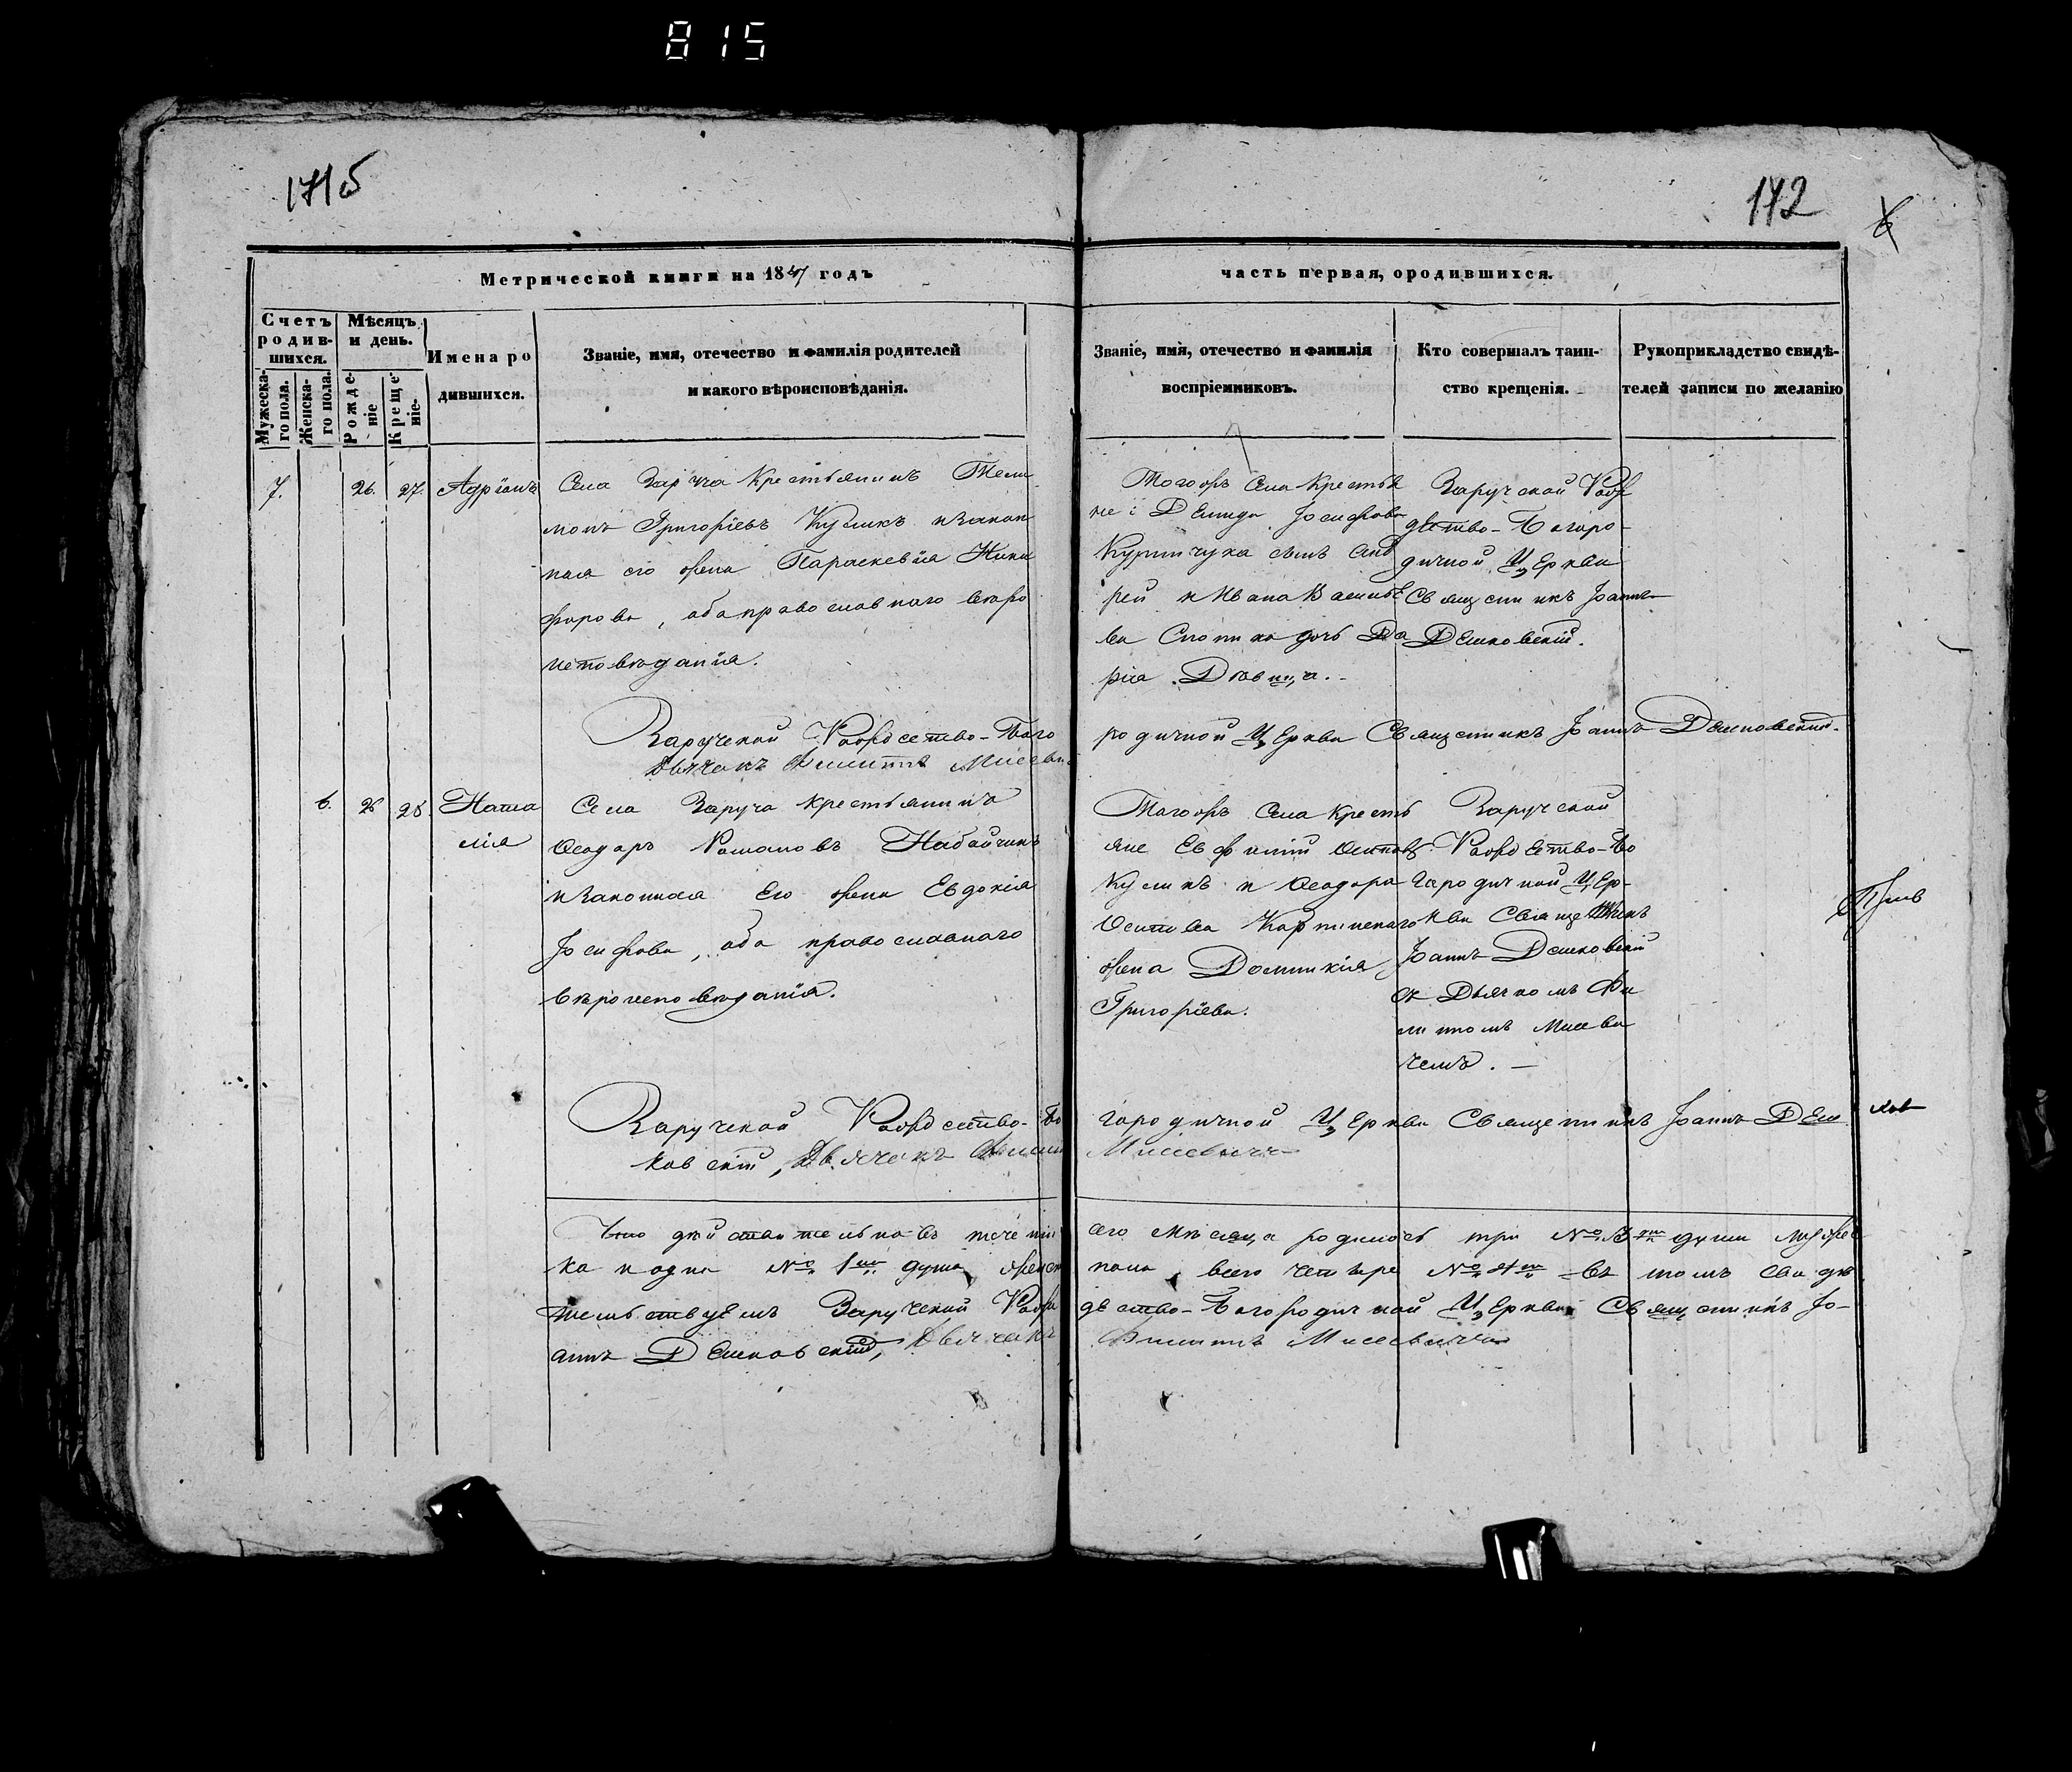 815
1715
142
Метрической книги на 1847 годъ
часть первая, о родившихся.
Счетъ родив-шихся.
Мужеска-го пола.
Женска-го пола.
Мѣсяцъ и день.
Рожде-ніе
Креще-ніе.
Имена ро дившихся.
Званіе, имя, отечество и фамилія родителей
и какого вѣроисповѣданія.
Званіе, имя, отечество и фамилія
воспріемниковъ.
Кто совершалъ таин-
ство крещенія.
Рукоприкладство свидѣ-
телей записи по желанію
7. 26. 27. Адріанъ
Села Заручча Крестьянинъ Тели
монъ Григоріевъ Куликъ и Закон
ная его жена Параскевія Ники
форова, оба православнаго вѣро
исповѣданія.
Тогожъ Села Крестья
не: Демида Іосифова
Курничука сынъ Анд
рей и Ивана Василіе
ва дочь Да
рія Дѣвица.
Заручской Рож
дество-Богоро-
дичной Церкви
Священникъ Іоаннъ
Демковскій.
Заручской Рождество-Бого
родичной Церкви Священникъ Іоаннъ Демковскій.
Дьячекъ Филиппъ Мисеви
6. 26 28. Ната
лія
Села Заруча Крестьянинъ
Феодоръ Романовъ Набойчикъ
и Законная Его жена Евдокія
Іосифова, оба православнаго
вѣроисповѣданія.
Тогожъ Села Кресть
яне Евфимій Осиповъ
Куликъ и Феодора
Осипова Карпинскаго
жена Домникія
Григоріева.
Заручской
Рождество-Бо
городичной Цер-
кви Священникъ
Іоаннъ Демковскій
съ Дьячкомъ Фи
липпомъ Мисеви
чемъ. —
Заручской Рождество-Бо
городичной Церкви Священникъ Іоаннъ Дем
ковскій, Дьячекъ Филип
Мисевичъ
Что дѣйствительно въ теченіи
сего Мѣсяца родилось три № 3 души мужес
ка и одна № 1 душа женск
пола, всего четыре № 4 въ томъ свидѣ
тельствуемъ Заручской Рож
дество-Богородичной Церкви Священникъ Іо-
аннъ Демковскій, Дьячекъ
Филиппъ Мисевичъ